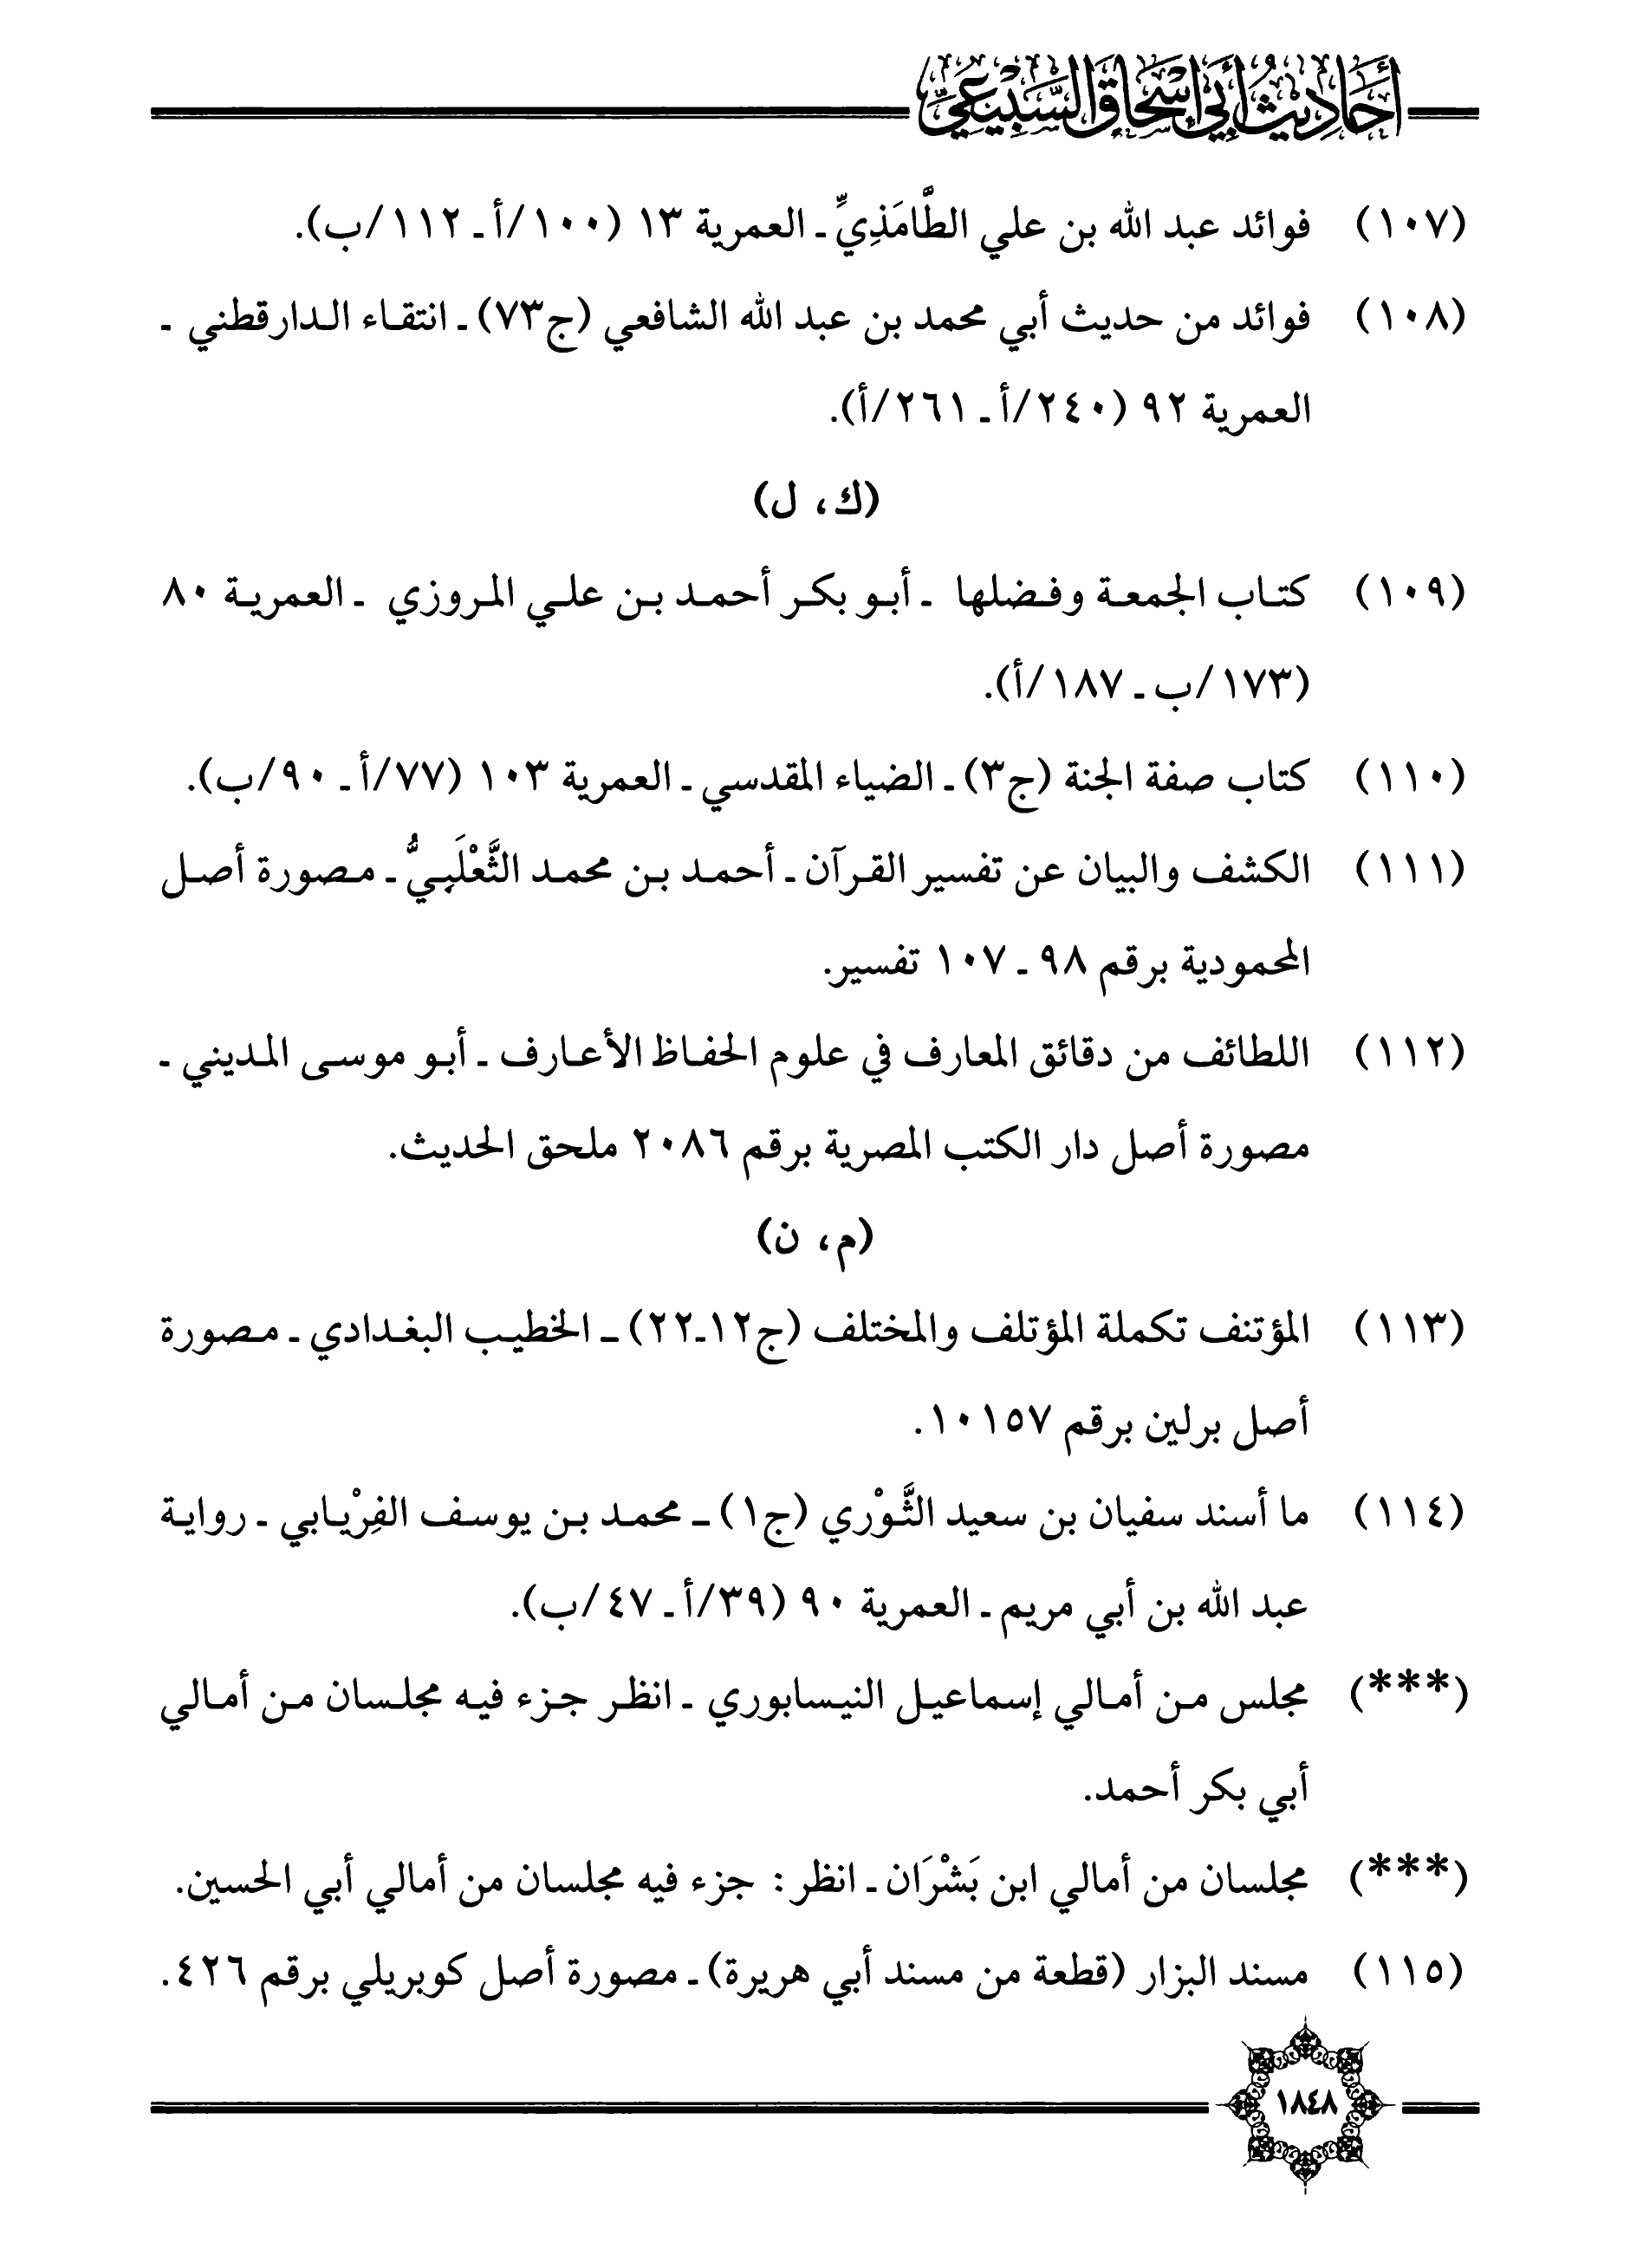 أحاديث أبي إسحاق السبيعي
(١٠٧) فوائد عبد الله بن علي الطَّامَذِيِّ ـ العمرية ١٣ (١٠٠/أ ـ ١١٢/ب).
(١٠٨) فوائد من حديث أبي محمد بن عبد الله الشافعي (ج٧٣) ـ انتقاء الدارقطني ـ
العمرية ٩٢ (٢٤٠/أ ـ ٢٦١/أ).
(ك، ل)
(١٠٩) كتاب الجمعة وفضلها ـ أبو بكر أحمد بن علي المروزي ـ العمرية ٨٠
(١٧٣/ب ـ ١٨٧/أ).
(١١٠) كتاب صفة الجنة (ج٣) ـ الضياء المقدسي ـ العمرية ١٠٣ (٧٧/أ ـ ٩٠/ب).
(١١١) الكشف والبيان عن تفسير القرآن ـ أحمد بن محمد الثَّعْلَبِيُّ ـ مصورة أصل
المحمودية برقم ٩٨ ـ ١٠٧ تفسير.
(١١٢) اللطائف من دقائق المعارف في علوم الحفاظ الأعارف ـ أبو موسى المديني ـ
مصورة أصل دار الكتب المصرية برقم ٢٠٨٦ ملحق الحديث.
(م، ن)
(١١٣) المؤتنف تكملة المؤتلف والمختلف (ج١٢ـ٢٢) ـ الخطيب البغدادي ـ مصورة
أصل برلين برقم ١٠١٥٧.
(١١٤) ما أسند سفيان بن سعيد الثَّوْري (ج١) ـ محمد بن يوسف الفِرْيابي ـ رواية
عبد الله بن أبي مريم ـ العمرية ٩٠ (٣٩/أ ـ ٤٧/ب).
(***) مجلس من أمالي إسماعيل النيسابوري ـ انظر جزء فيه مجلسان من أمالي
أبي بكر أحمد.
(***) مجلسان من أمالي ابن بَشْرَان ـ انظر: جزء فيه مجلسان من أمالي أبي الحسين.
(١١٥) مسند البزار (قطعة من مسند أبي هريرة) ـ مصورة أصل كوبريلي برقم ٤٢٦.
١٨٤٨